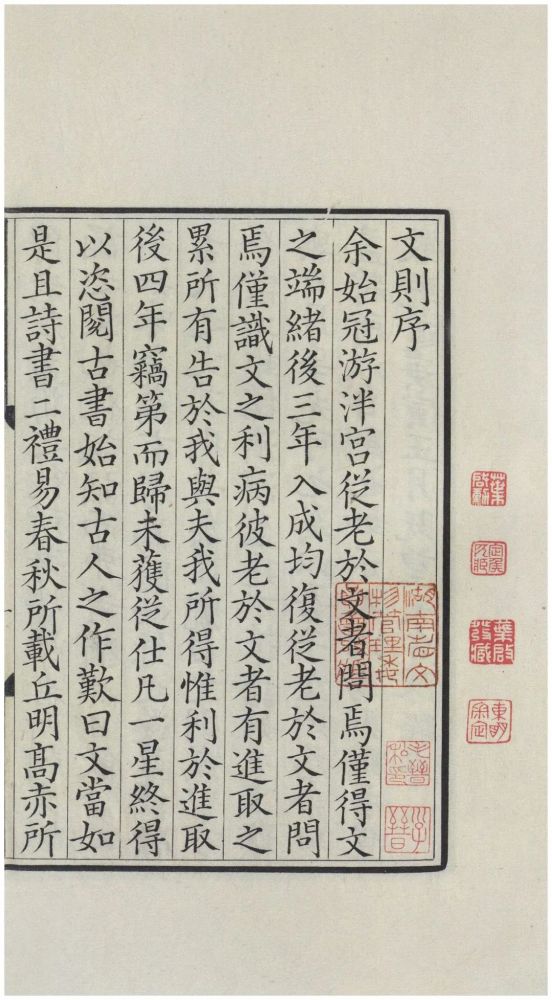 文則序
余始冠游泮宮從老於文者問焉僅得文
之端緒後三年入成均復從老於文者問
焉僅識文之利病彼老於文者有進取之
累所有告於我與夫我所得惟利於進取
後四年竊第而歸未獲從仕凡一星終得
以恣閱古書始知古人之作歎曰文當如
是且詩書二禮易春秋所載丘明高赤所
葉啟勳
葉啟發藏
東明